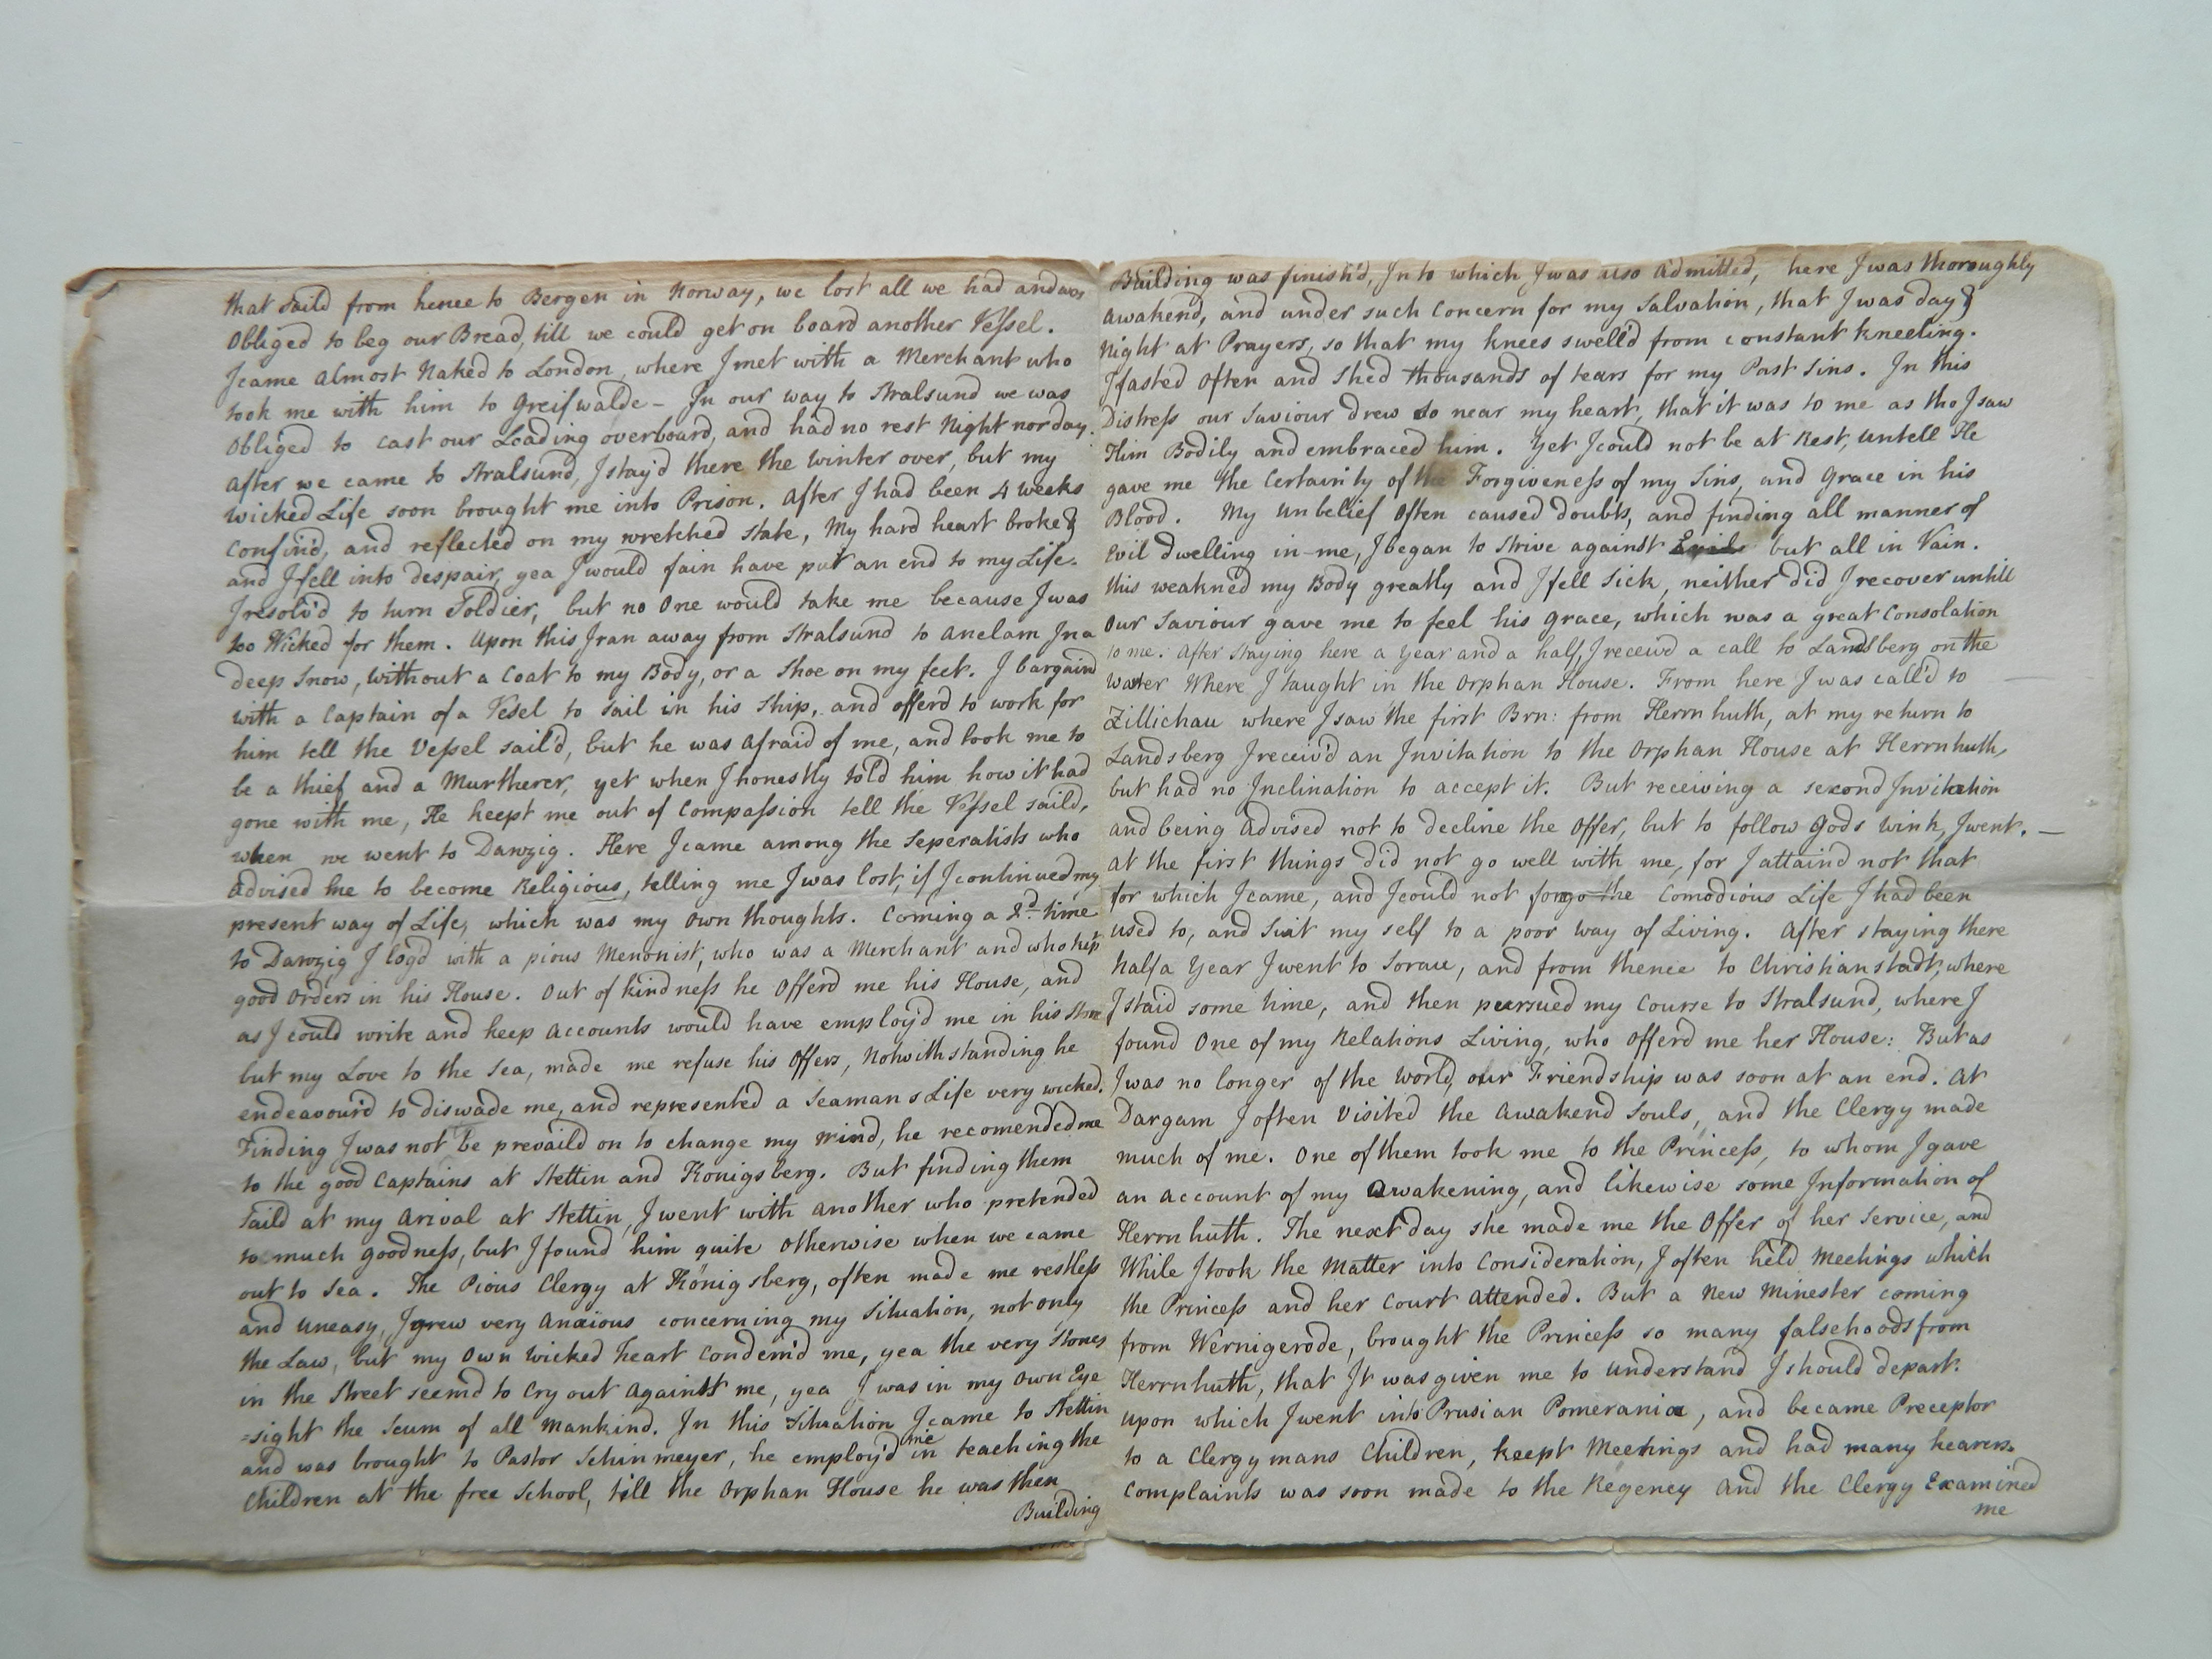 that Saild from hence to Bergen in Norway, we lost all we had and was
Obliged to beg our Bread, till we could get on board another Vessel.
I came almost Naked to London, where I met with a Merchant who
took me with him to Greifwalde – In our way to Stralsund we was
Obliged to cast our Loading overboard, and had no rest Night nor day.
After we came to Stralsund, I stay'd there the Winter over, but my
Wicked Life soon brought me into Prison. After I had been 4 weeks
Confin'd, and reflected on my wretched state, My hard heart broke &
and I fell into despair, yea I would fain have put an end to my Life.
I resolv'd to turn Soldier, but no One would take me because I was
too Wicked for them. Upon this I ran away from Stralsund to Anclam In a
deep Snow, without a Coat to my Body, or a Shoe on my feet. I bargaind
with a Captain of a Vesel to Sail in his Ship, and offerd to work for
him tell the Vessel sail'd, but he was Afraid of me, and took me to
be a thief and a Murtherer, yet when I honestly told him how it had
gone with me, He keept me out of Compassion tell the Vessel saild,
when we went to Danzig. Here I came among the Seperatists who
Advised me to become Religious, telling me I was lost, if I continued my
present way of Life, which was my Own thoughts. Coming a 2d. time
to Danzig I log'd with a pious Menonist, who was a Merchant and who kept
good Orders in his House. Out of kindness he Offerd me his House, and
as I could write and keep Accounts would have employ'd me in his Store
but my Love to the Sea, made me refuse his Offers, Notwithstanding he
endeavour'd to diswade me, and represented a Seamans Life very wicked.
Finding I was not be prevaild on to change my Mind, he recomended me
to the good Captains at Stettin and Konigsberg. But finding them
Saild at my Arival at Stettin, I went with another who pretended
to much goodness, but I found him quite Otherwise when we came
out to Sea. The Pious Clergy at Königsberg, often made me restless
and Uneasy, I grew very Anxious concerning my Situation, not only
the Law, but my Own Wicked heart Condem'd me, yea the very Stones
in the Street seemd to Cry out Against me, yea I was in my Own Eye
=sight the Scum of all Mankind. In this Situation I came to Stettin
and was brought to Pastor Schinmeyer, he employ'd me in teaching the
Children at the free School, till the Orphan House he was then
Building
Building was finish'd, Into which I was also Admitted, here I was thoroughly
Awakend, and under such Concern for my Salvation, that I was day &
Night at Prayers, so that my knees swell'd from constant kneeling.
I fasted Often and Shed thousands of tears for my Past Sins. In this
Distress our Saviour drew so near my heart, that it was to me as tho I saw
Him Bodily and embraced him. Yet I could not be at Rest, Untell He
gave me the Certainty of the Forgiveness of my Sins, and Grace in his
Blood. My Unbelief Often caused doubts, and finding all manner of
Evil dwelling in me, I began to Strive against Evil but all in Vain.
this weakned my Body greatly and I fell Sick, neither did I recover untill
Our Saviour gave me to feel his Grace, which was a great Consolation
to me. After Staying here a Year and a half, I receiv'd a call to Landsberg on the
Water Where I taught in the Orphan House. From here I was call'd to
Zillichau where I saw the first Brn: from Herrnhuth, at my return to
Landsberg I receiv'd an Invitation to the Orphan House at Herrnhuth,
but had no Inclination to accept it. But receiving a second Invitation
and being Advised not to decline the Offer, but to follow Gods wink, I went. —
At the first things did not go well with me, for I attaind not that
for which I came, and I could not forgo the Comodious Life I had been
used to, and Suit my self to a poor way of Living. After staying there
half a Year I went to Sorau, and from thence to Christianstadt, where
I staid some time, and then pursued my Course to Stralsund, where I
found One of my Relations Living, who Offerd me her House: But as
I was no longer of the World, our Friendship was soon at an end. At
Dargum I often Visited the Awakend Souls, and the Clergy made
much of me. One of them took me to the Princess, to whom I gave
an account of my Awakening, and likewise some Information of
Herrnhuth. The next day she made me the Offer of her Service, and
While I took the Matter into Consideration, I often held Meetings which
the Princess and her Court Attended. But a New Minester coming
from Wernigerode, brought the Princess so many falsehoods from
Herrnhuth, that It was given me to Understand I should depart.
Upon which I went into Prusian Pomerania, and became Preceptor
to a Clergymans Children, keept Meetings and had many hearers.
Complaints was soon made to the Regency And the Clergy Examined
me